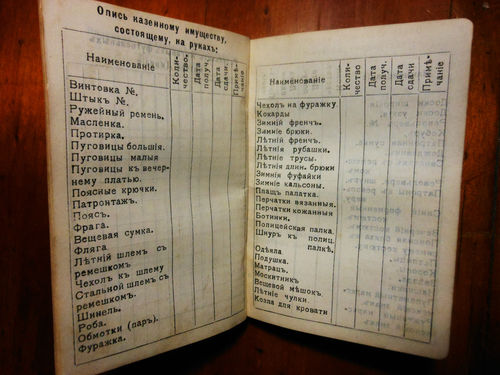 Опись казенному имуществу,
состоящему, на рукахъ:
Наименованіе
Коли-
чество.
Дата
получ.
Дата
сдачи.
Примѣ-
чаніе
Винтовка №.
Штыкъ №.
Ружейный ремень.
Масленка.
Протирка.
Пуговицы большія.
Пуговицы малыя
Пуговицы къ вечер-
нему платью.
Поясные крючки.
Патронтажъ.
Поясъ.
Фрага.
Вещевая сумка.
Фляга
Лѣтній шлемъ съ
ремешкомъ
Чехолъ къ шлему
Стальной шлемъ съ
ремешкомъ.
Шинель.
Роба.
Обмотки (паръ).
Фуражка.
Наименованіе
Коли-
чество
Дата
получ.
Дата
сдачи
Примѣ-
чаніе
Чехолъ на фуражку
Кокарды
Зимній френчъ.
Зимніе брюки.
Лѣтній френчъ.
Лѣтнія рубашки.
Лѣтніе трусы.
Лѣтнія длин. брюки
Зимнія фуфайки
Зимніе кальсоны.
Плащъ палатка.
Перчатки вязанныя.
Перчатки кожанныя
Ботинки.
Полицейская палка.
Шнуръ къ полиц.
палкѣ.
Одѣяла
Подушка.
Матрацъ.
Москитникъ
Вещевой мѣшокъ.
Лѣтніе чулки.
Козла для кровати